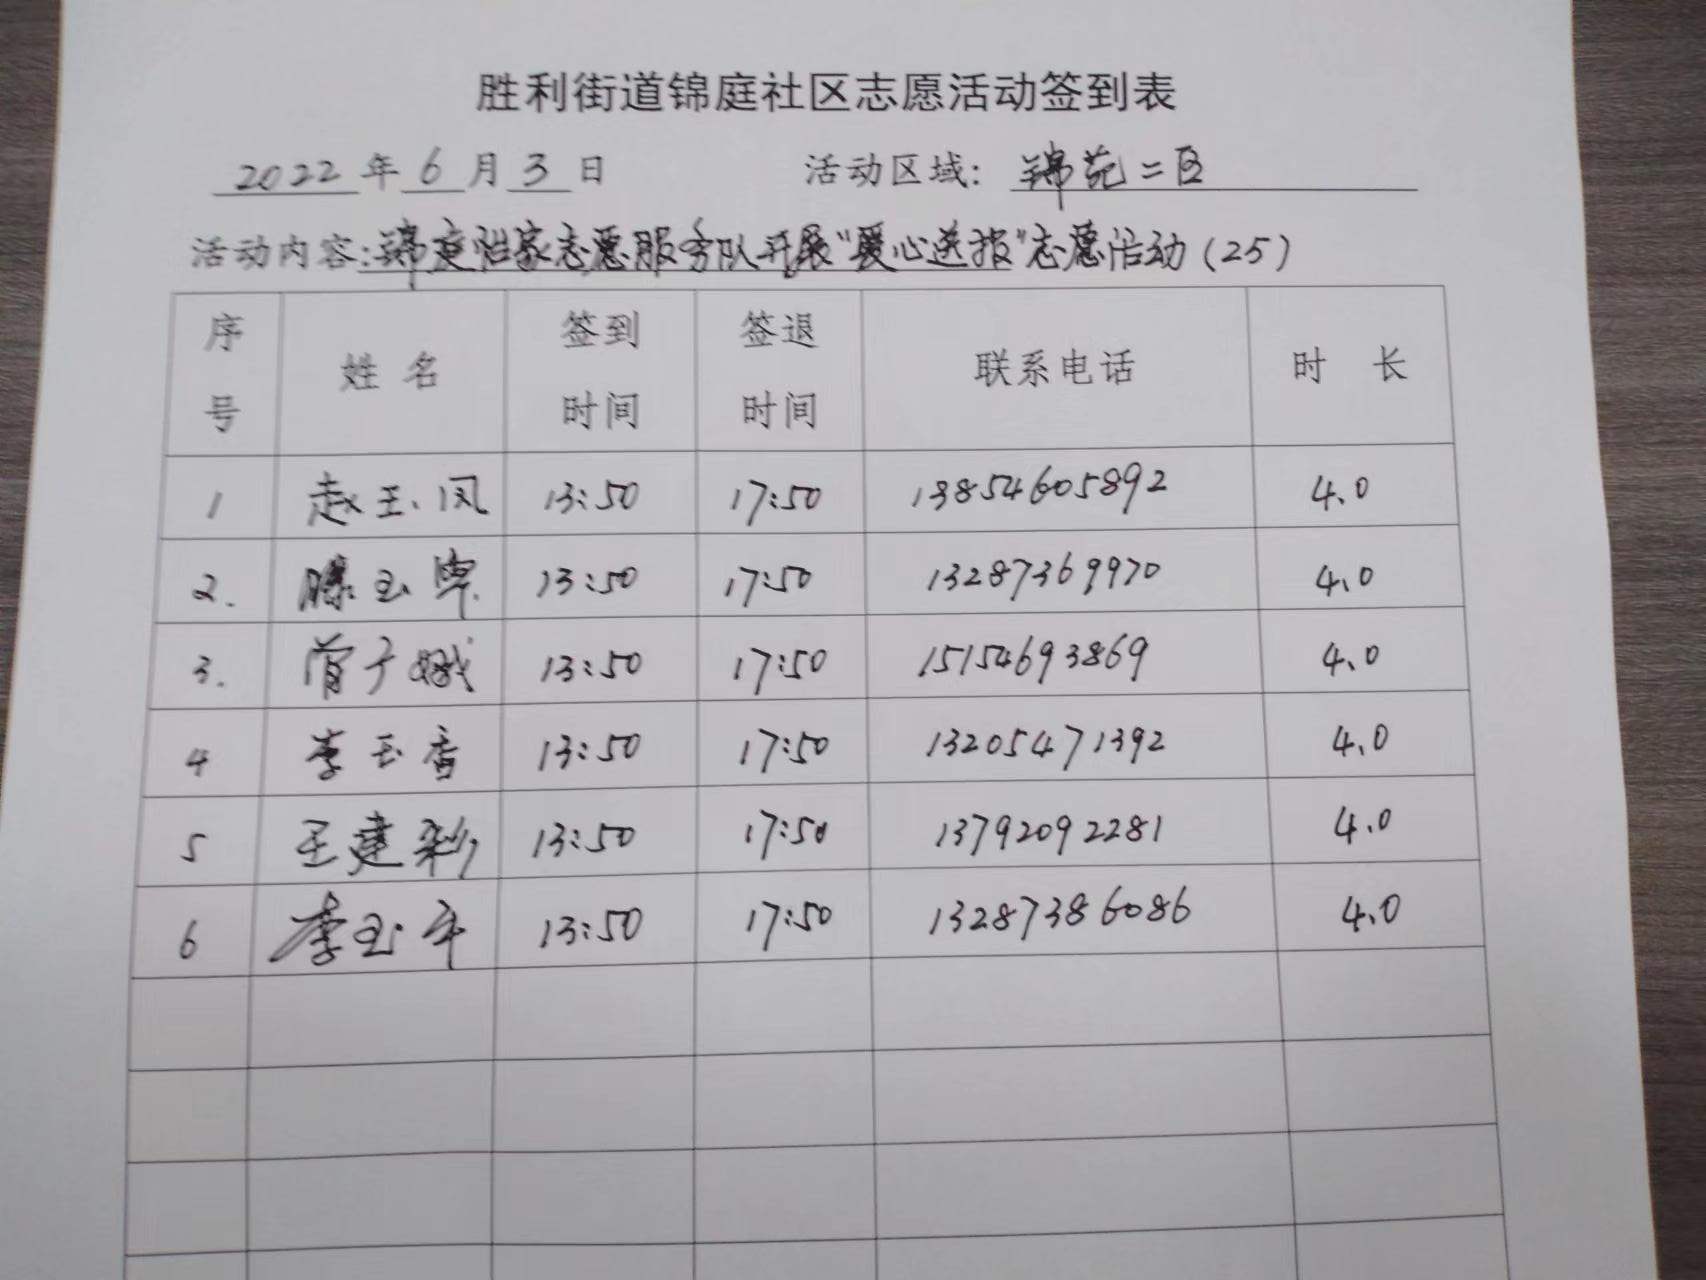 胜利街道锦庭社区志愿活动签到表
2022年6月3日 活动区域：锦苑二区
活动内容：锦庭恒家志愿服务队开展“爱心送报”志愿活动（25）
序号 姓名 签到时间 签退时间 联系电话 时长
1 赵玉凤 13:50 17:50 13854605892 4.0
2. 滕玉 13:50 17:50 13287369970 4.0
3. 曾子娥 13:50 17:50 15154693869 4.0
4 李玉香 13:50 17:50 13205471392 4.0
5 王建利 13:50 17:50 13792092281 4.0
6 李玉 13:50 17:50 13287386086 4.0